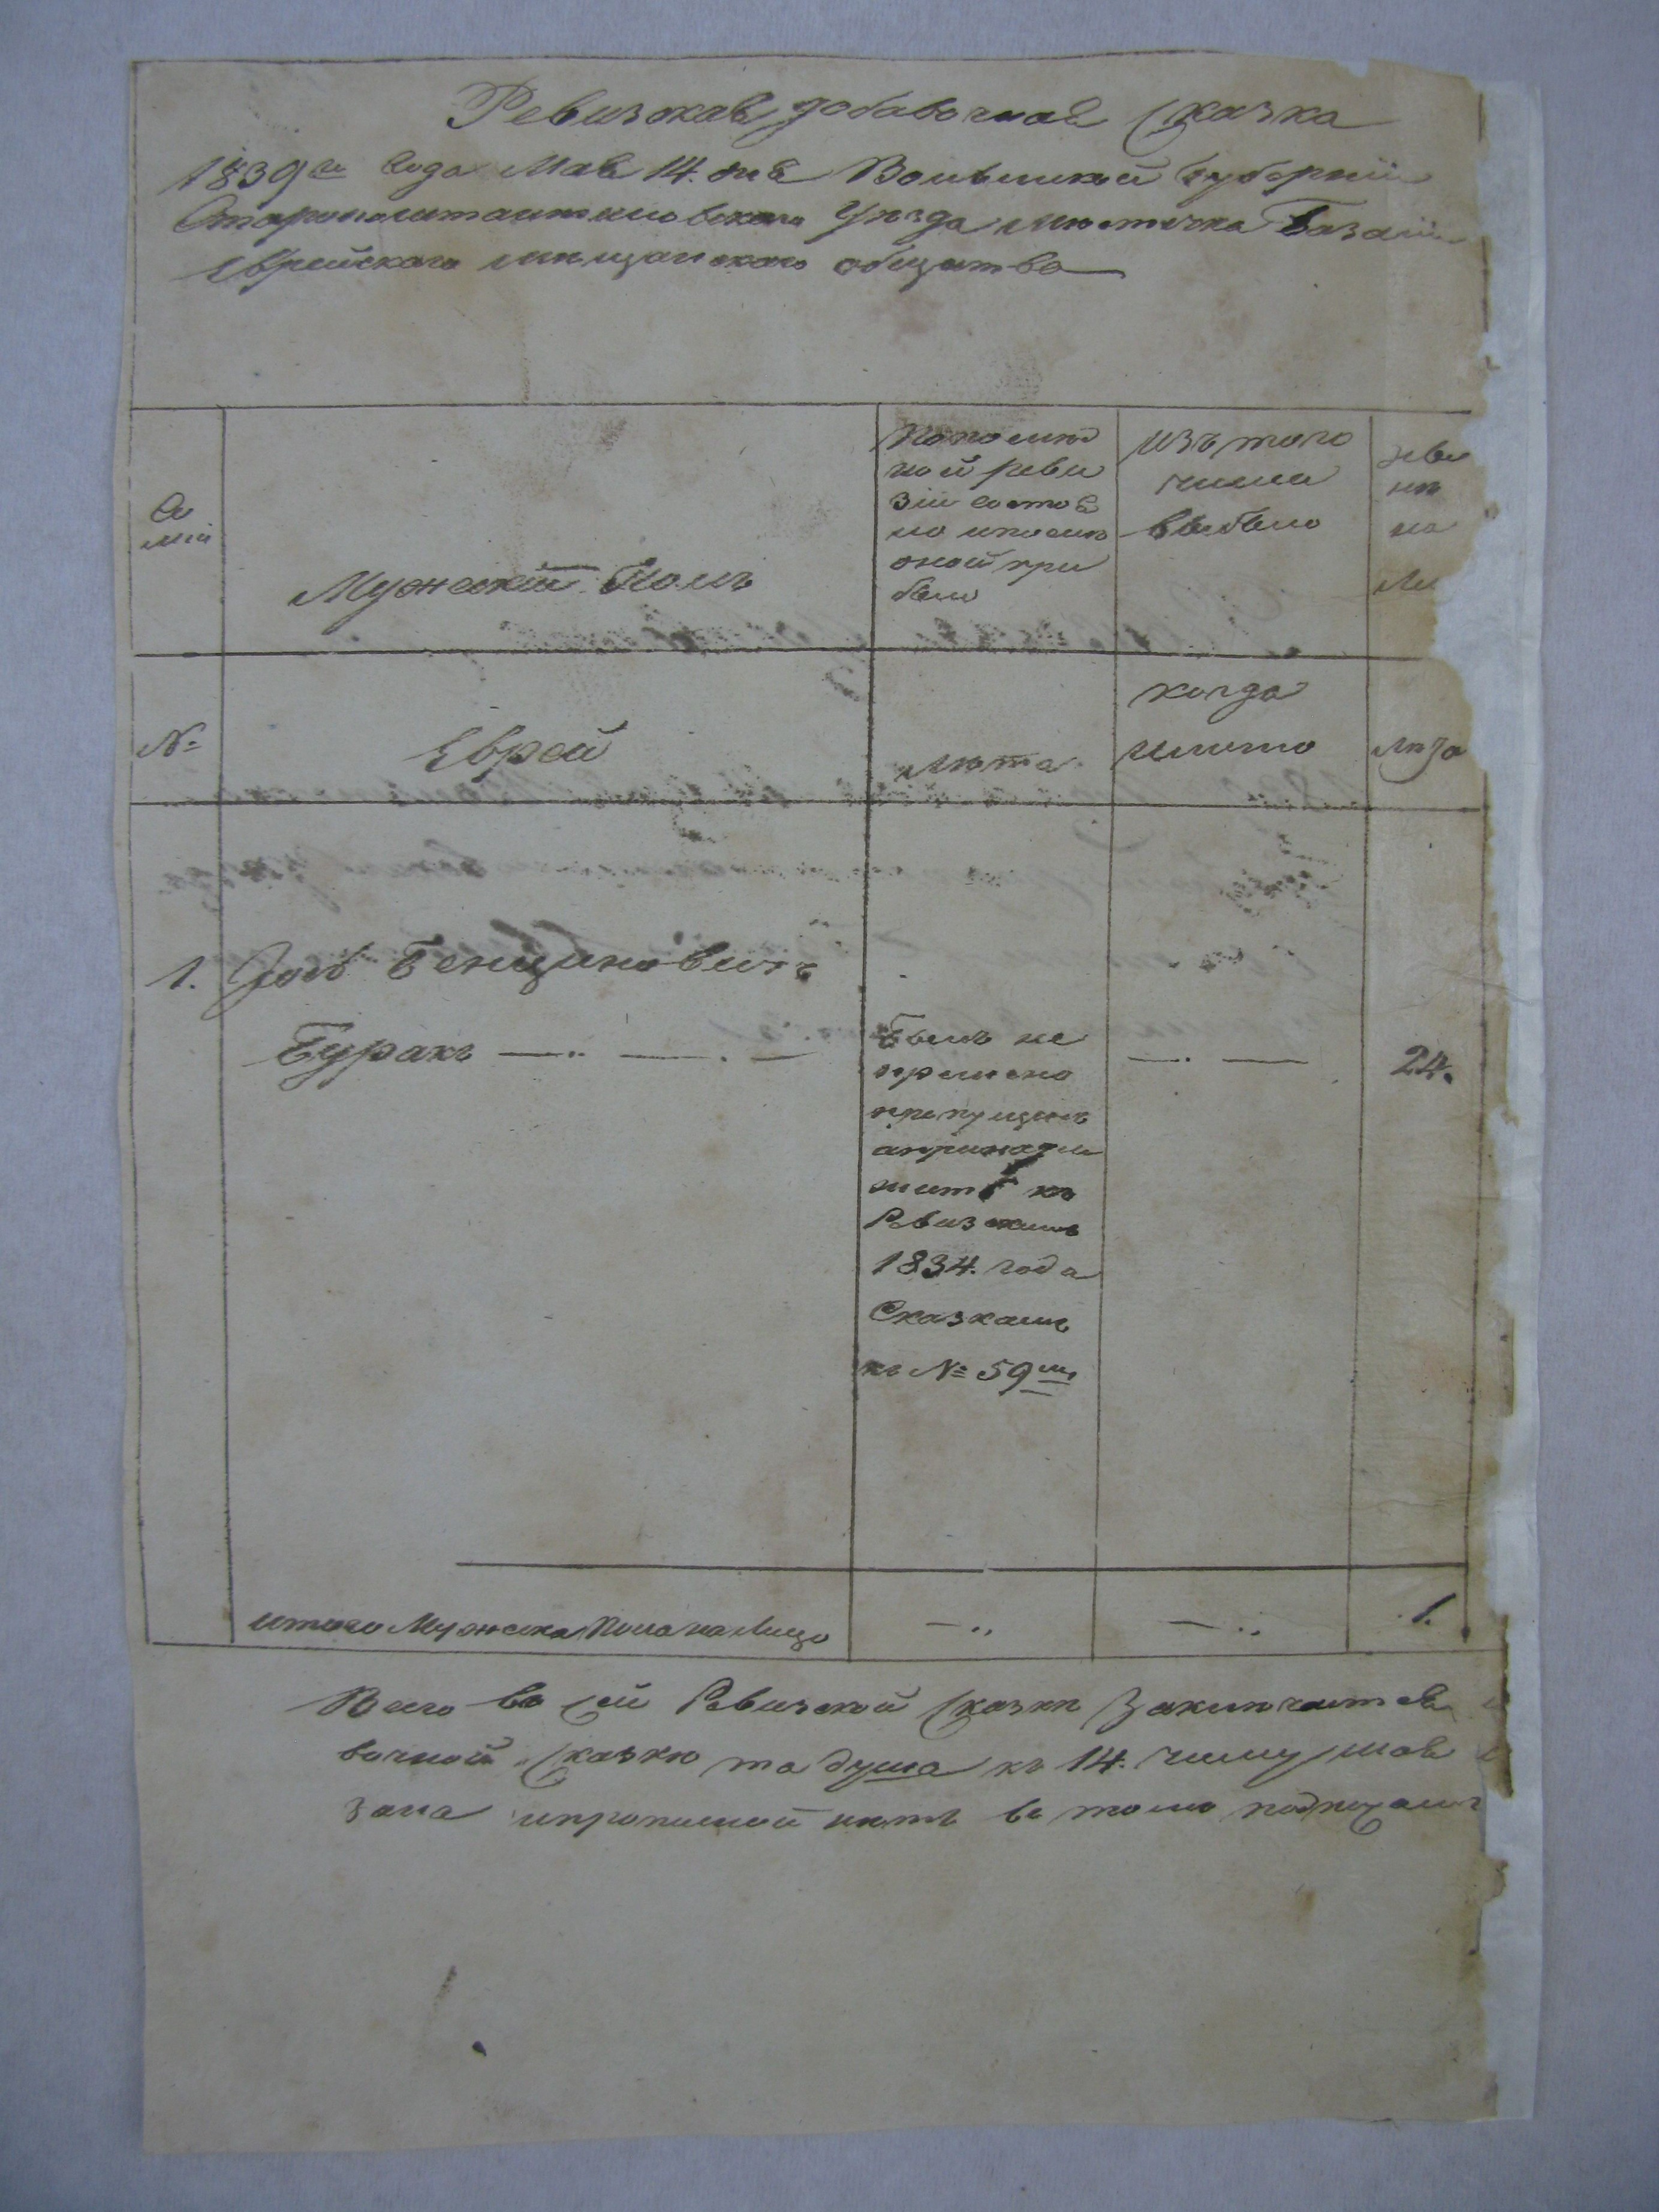 Ревизкая добавочная Сказка
1839го Года Мая 14. дня Волынской Губернии
Староконстантиновскаго Уѣзда Мѣстечка Базалiи
Еврейскаго мѣщанскаго общества
По послѣд
ной реви
зiи состоя
ло и после
оной при
было
Изъ того
числа
выбыло
нѣ
на
Ли
Се
мiи
Мужескiй Полъ
№
Еврей
Лѣта
когда
имянно
Лѣта
1.
Бенционовичъ
Буракъ
Былъ не
пропущенъ
а принадле
житъ къ
Ревизскимъ
1834. года
Сказкамъ
къ № 59му
24.
Итого Мужеска Пола на Лицо
1.
Всего въ сей Ревизской Сказкѣ Заключается
вочной Сказкѣ та душа къ 14. числу мая
зана и прописной нѣтъ въ томъ подписомъ